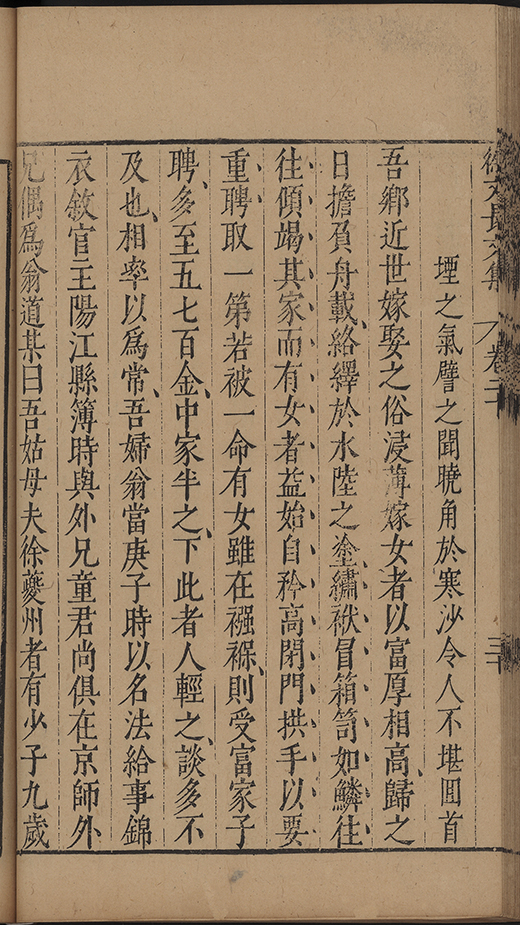 徐文長文集 卷二十 三十
堙之氣譬之聞曉角於寒沙令人不堪囬首
吾鄉近世嫁娶之俗浸薄嫁女者以富厚相高歸之
日擔負舟載絡繹於水陸之塗繡袱冒箱笥如鱗往
往傾竭其家而有女者益始自矜高閉門拱手以要
重聘取一第若被一命有女雖在襁褓則受富家子
聘多至五七百金中家半之下此者人輕之談多不
及也相率以為常吾婦翁當庚子時以名法給事錦
衣敘官王陽江縣簿時與外兄童君尚俱在京師外
兄偶為翁道某曰吾姑母夫徐夔州者有少子九歲